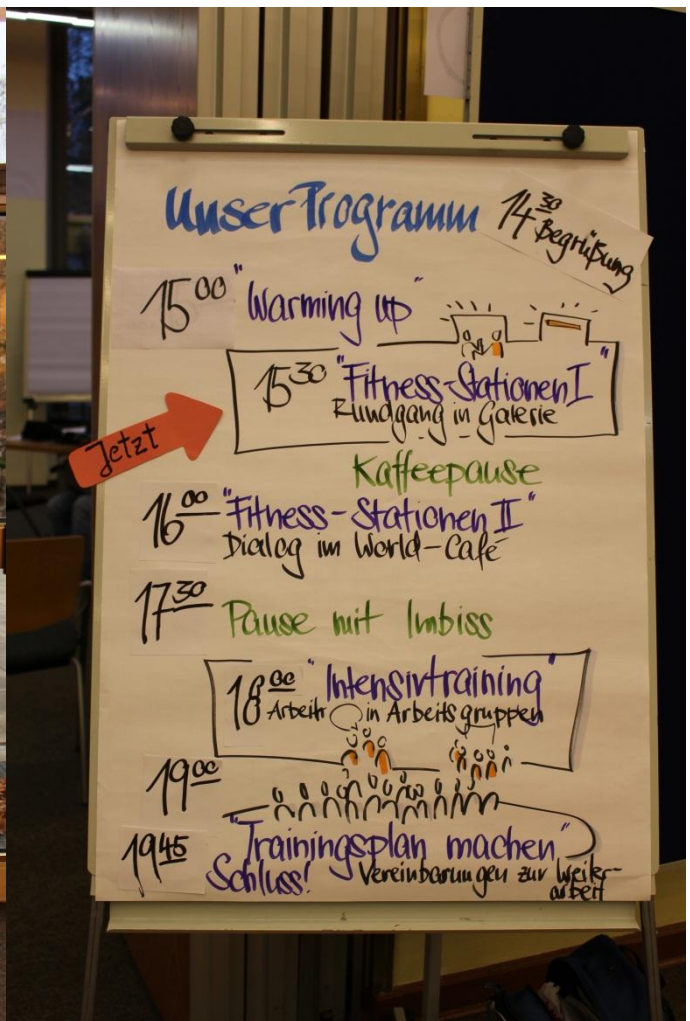 Unser Programm
14 30 Begrüßung
15 00 "Warming up"
15 30 "Fitness-Stationen I"
Rundgang in Galerie
Jetzt
Kaffeepause
16 00 "Fitness-Stationen II"
Dialog im World-Café
17 30 Pause mit Imbiss
18 00 "Intensivtraining"
in Arbeitsgruppen
19 00
"Trainingsplan machen"
19 45 Schluss! Vereinbarungen zur Weiter-
arbeit